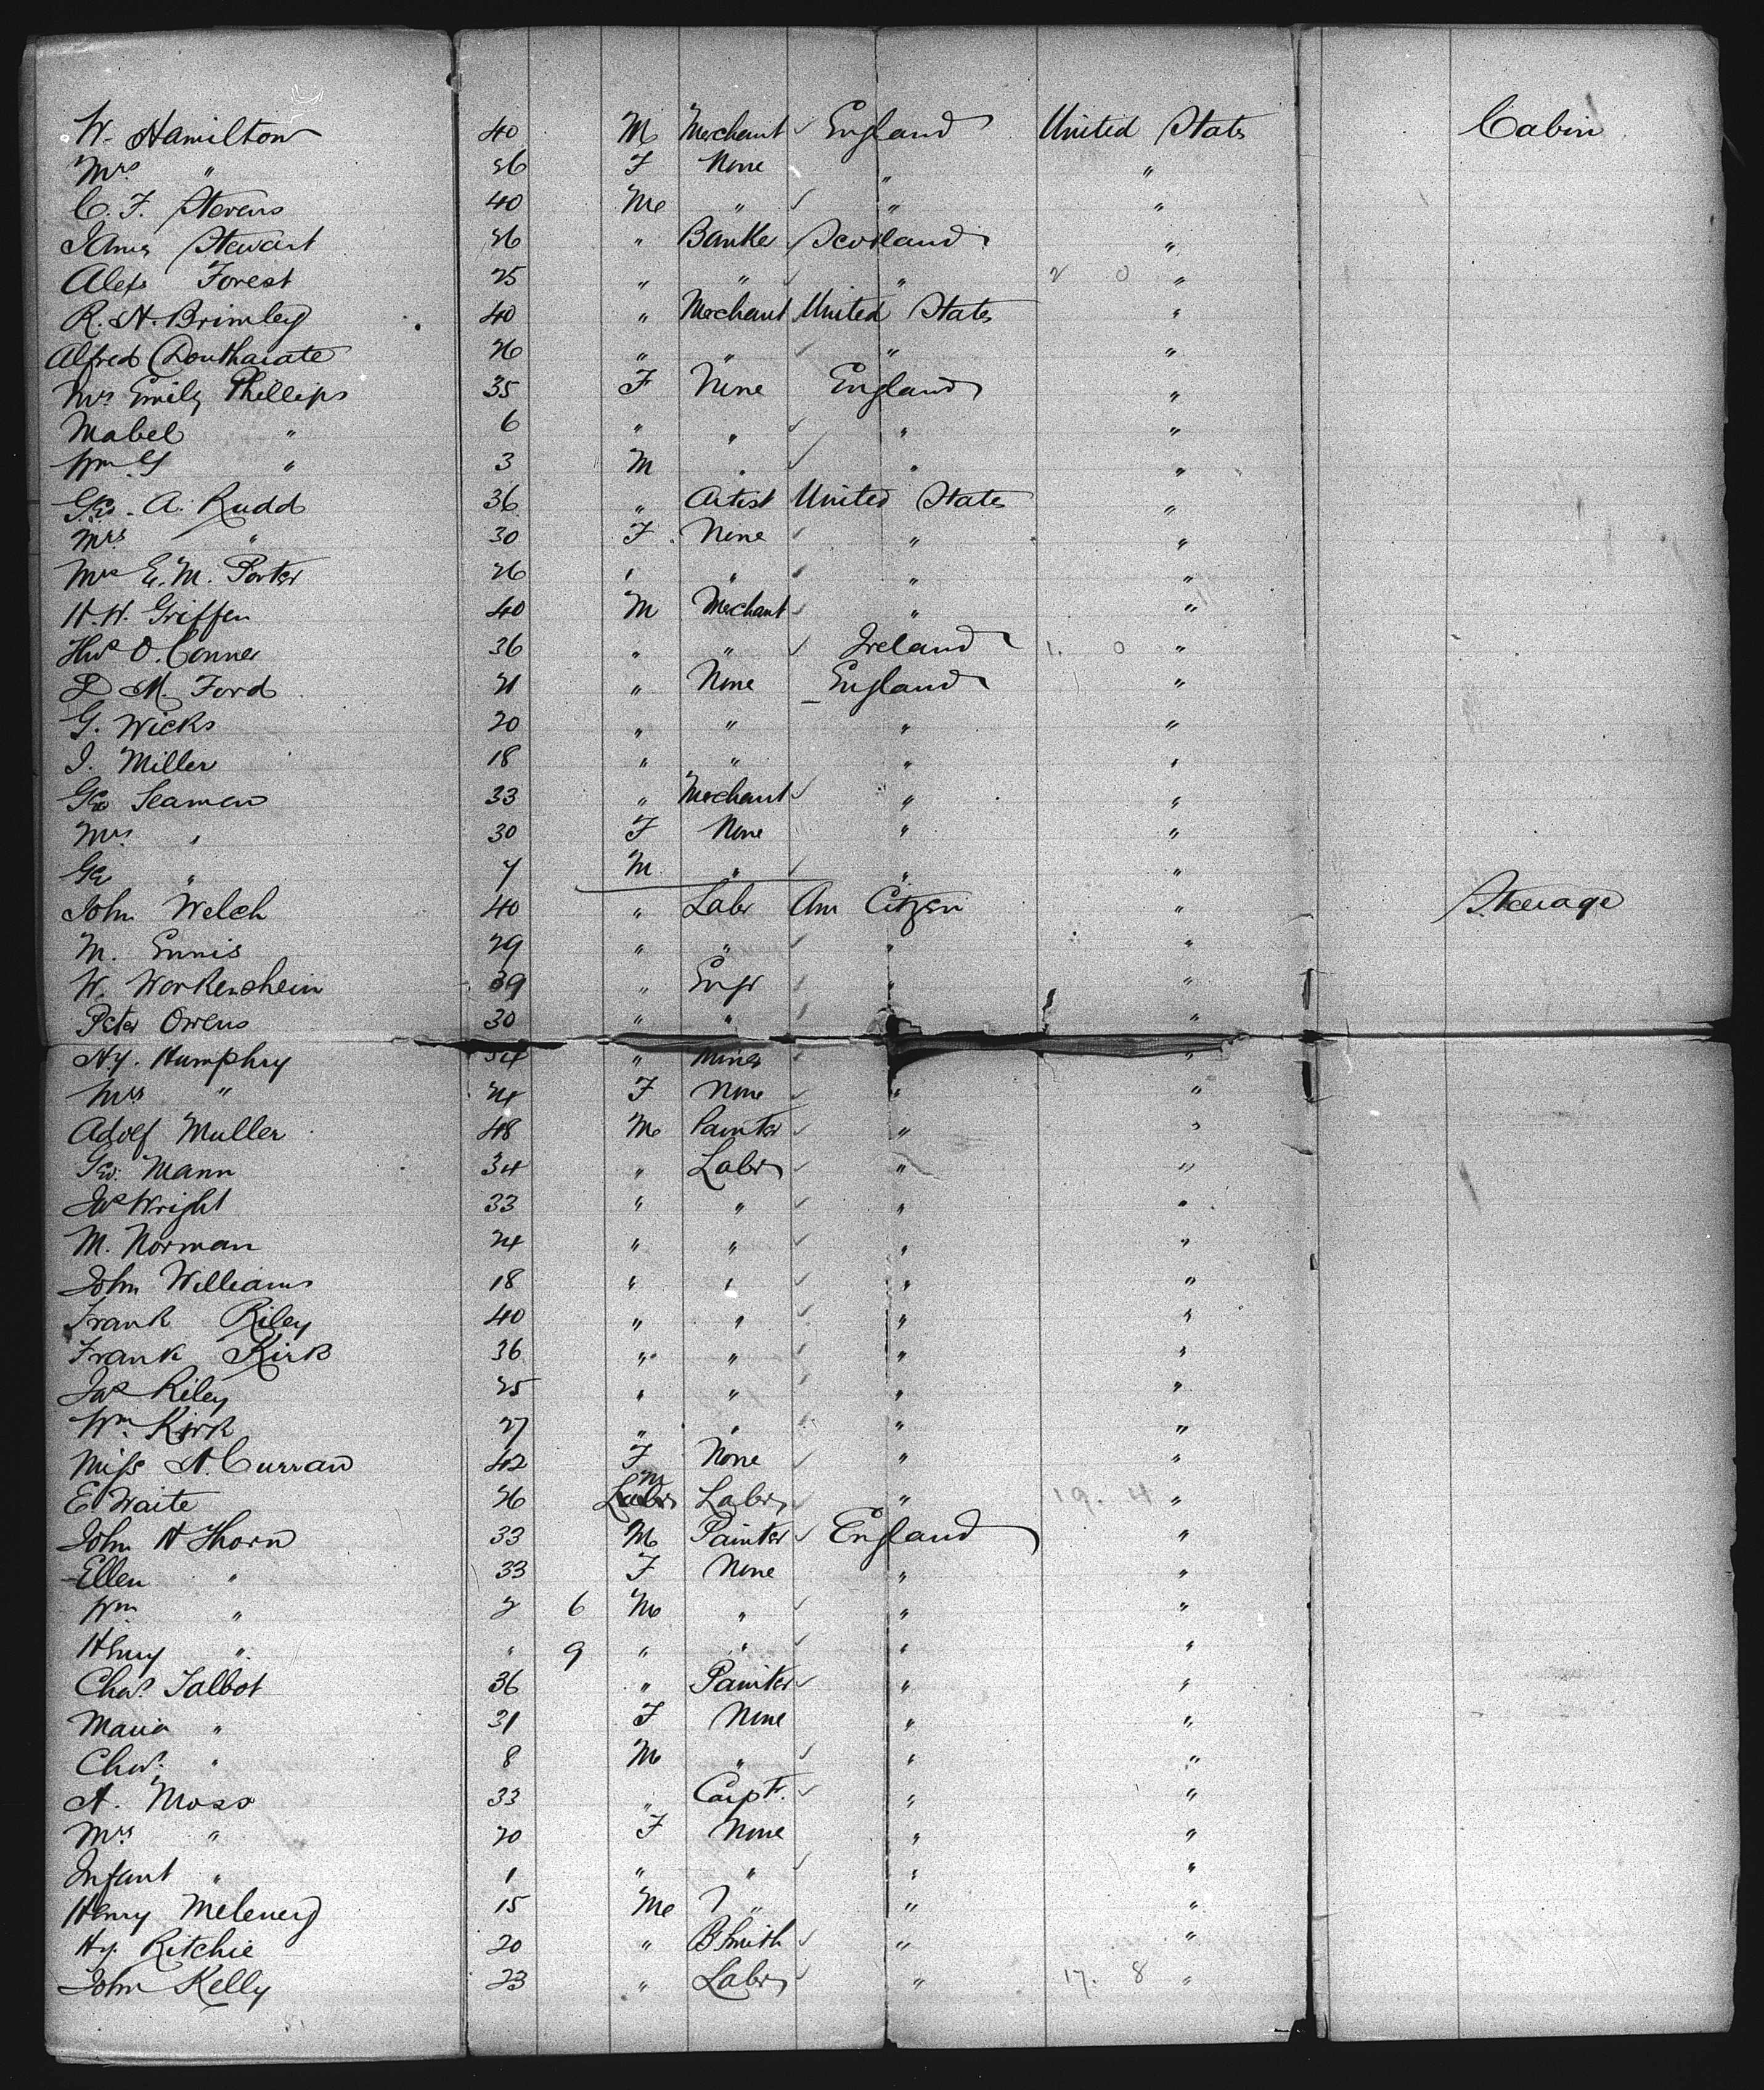 W. Hamilton 40 M Merchant England United States Cabin
Mrs " 26 F None " "
C. F. Stevens 40 M " " "
James Stewart 26 " Banker Scotland "
Alexr Forest 25 " " " 2 0 "
R. H. Brimley 40 " Merchant United States "
Alfred Douthaiate 26 " " " "
Mrs Emily Phillips 35 F None England "
Mabel " 6 " " " "
Wm G " 3 M " " "
Geo. A. Rudd 36 " Artist United States "
Mrs " 30 F None " "
Mrs E. M. Porter 26 " " " "
H. W. Griffen 40 M Merchant " "
Thos O. Conner 36 " " Ireland 1. 0 "
D M Ford 21 " None England "
G. Wicks 20 " " " "
J. Miller 18 " " " "
Geo Seamen 33 " Merchant " "
Mrs " 30 F None " "
Geo " 7 M " " "
John Welch 40 " Labr Am Citzen " Steerage
M. Ennis 29 " " " "
W. Workenshein 39 " Engr " "
Peter Owens 30 " " " "
Hy. Humphry 34 " Miner "
Mrs " 24 F None " "
Adolf Muller 48 M Painter " "
Geo. Mann 34 " Labr " "
Jas Wright 33 " " " "
M. Norman 24 " " " "
John Williams 18 " " " "
Frank Riley 40 " " " "
Frank Kirk 36 " " " "
Jas Riley 25 " " " "
Wm Kirk 27 " " " "
Miss A. Curran 42 F None " "
E Waite 26 M Labr " 19. 4 "
John H Thorn 33 M Painter England "
Ellen " 33 F None " "
Wm " 2 6 M " " "
Henry " " 9 " " " "
Chas. Talbot 36 " Painter " "
Maria " 31 F None " "
Chas. " 8 M " " "
A. Moss 33 " Carpt. " "
Mrs " 20 F None " "
Infant " 1 " " " "
Henry 15 M " " "
Hy. Ritchie 20 " B Smith " "
John Kelly 23 " Labr " 17. 8 "